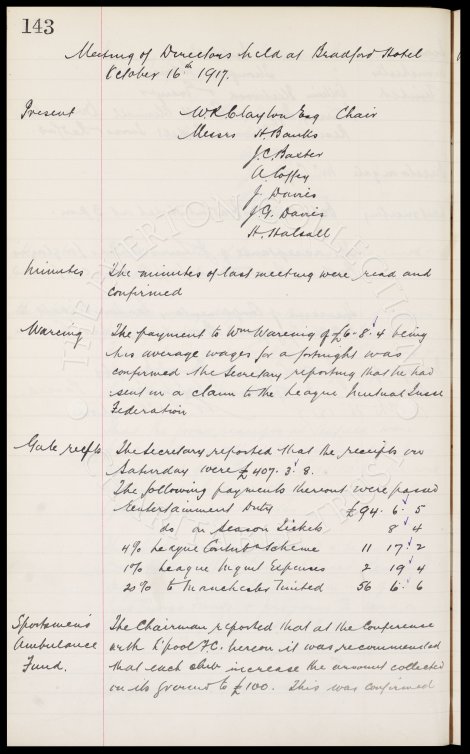 143
Meeting of Directors held at Bradford Hotel
October 16th 1917.
Present W.R. Clayton Esq Chair
Messrs H. Banks
J.C. Baxter
A. Coffey
J. Davies
J.G. Davies
H. Halsall
Minutes The minutes of last meeting were read and
confirmed
Wareing The payment to Wm Wareing of £6. 8. 4 being
his average wages for a fortnight was
confirmed the Secretary reporting that he had
sent in a claim to the League Mutual Insce
Federation
Gate recpts The Secretary reported that the receipts on
Saturday were £407. 3. 8.
The following payments thereout were passed
Entertainment Duty £94. 6. 5
do on Season Tickets 8 4
4% League Contribn Scheme 11 17. 2
1% League Mgmt Expenses 2 19 4
20% to Manchester United 56 6. 6
Sportsmen's The Chairman reported that at the Conference
Ambulance with L'pool F.C. hereon it was recommended
Fund. that each club increase the amount collected
on its ground to £100. This was confirmed
THE EVERTON COLLECTION